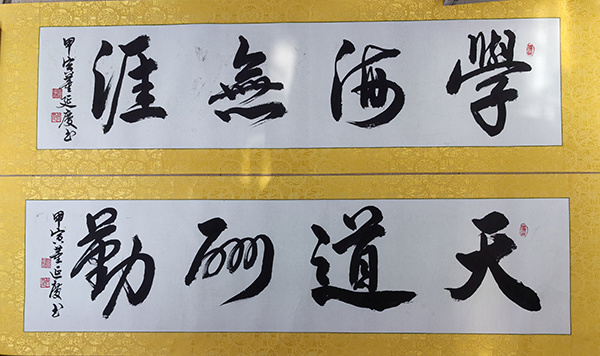 學海無涯
甲寅董延慶书
天道酬勤
甲寅董延慶书